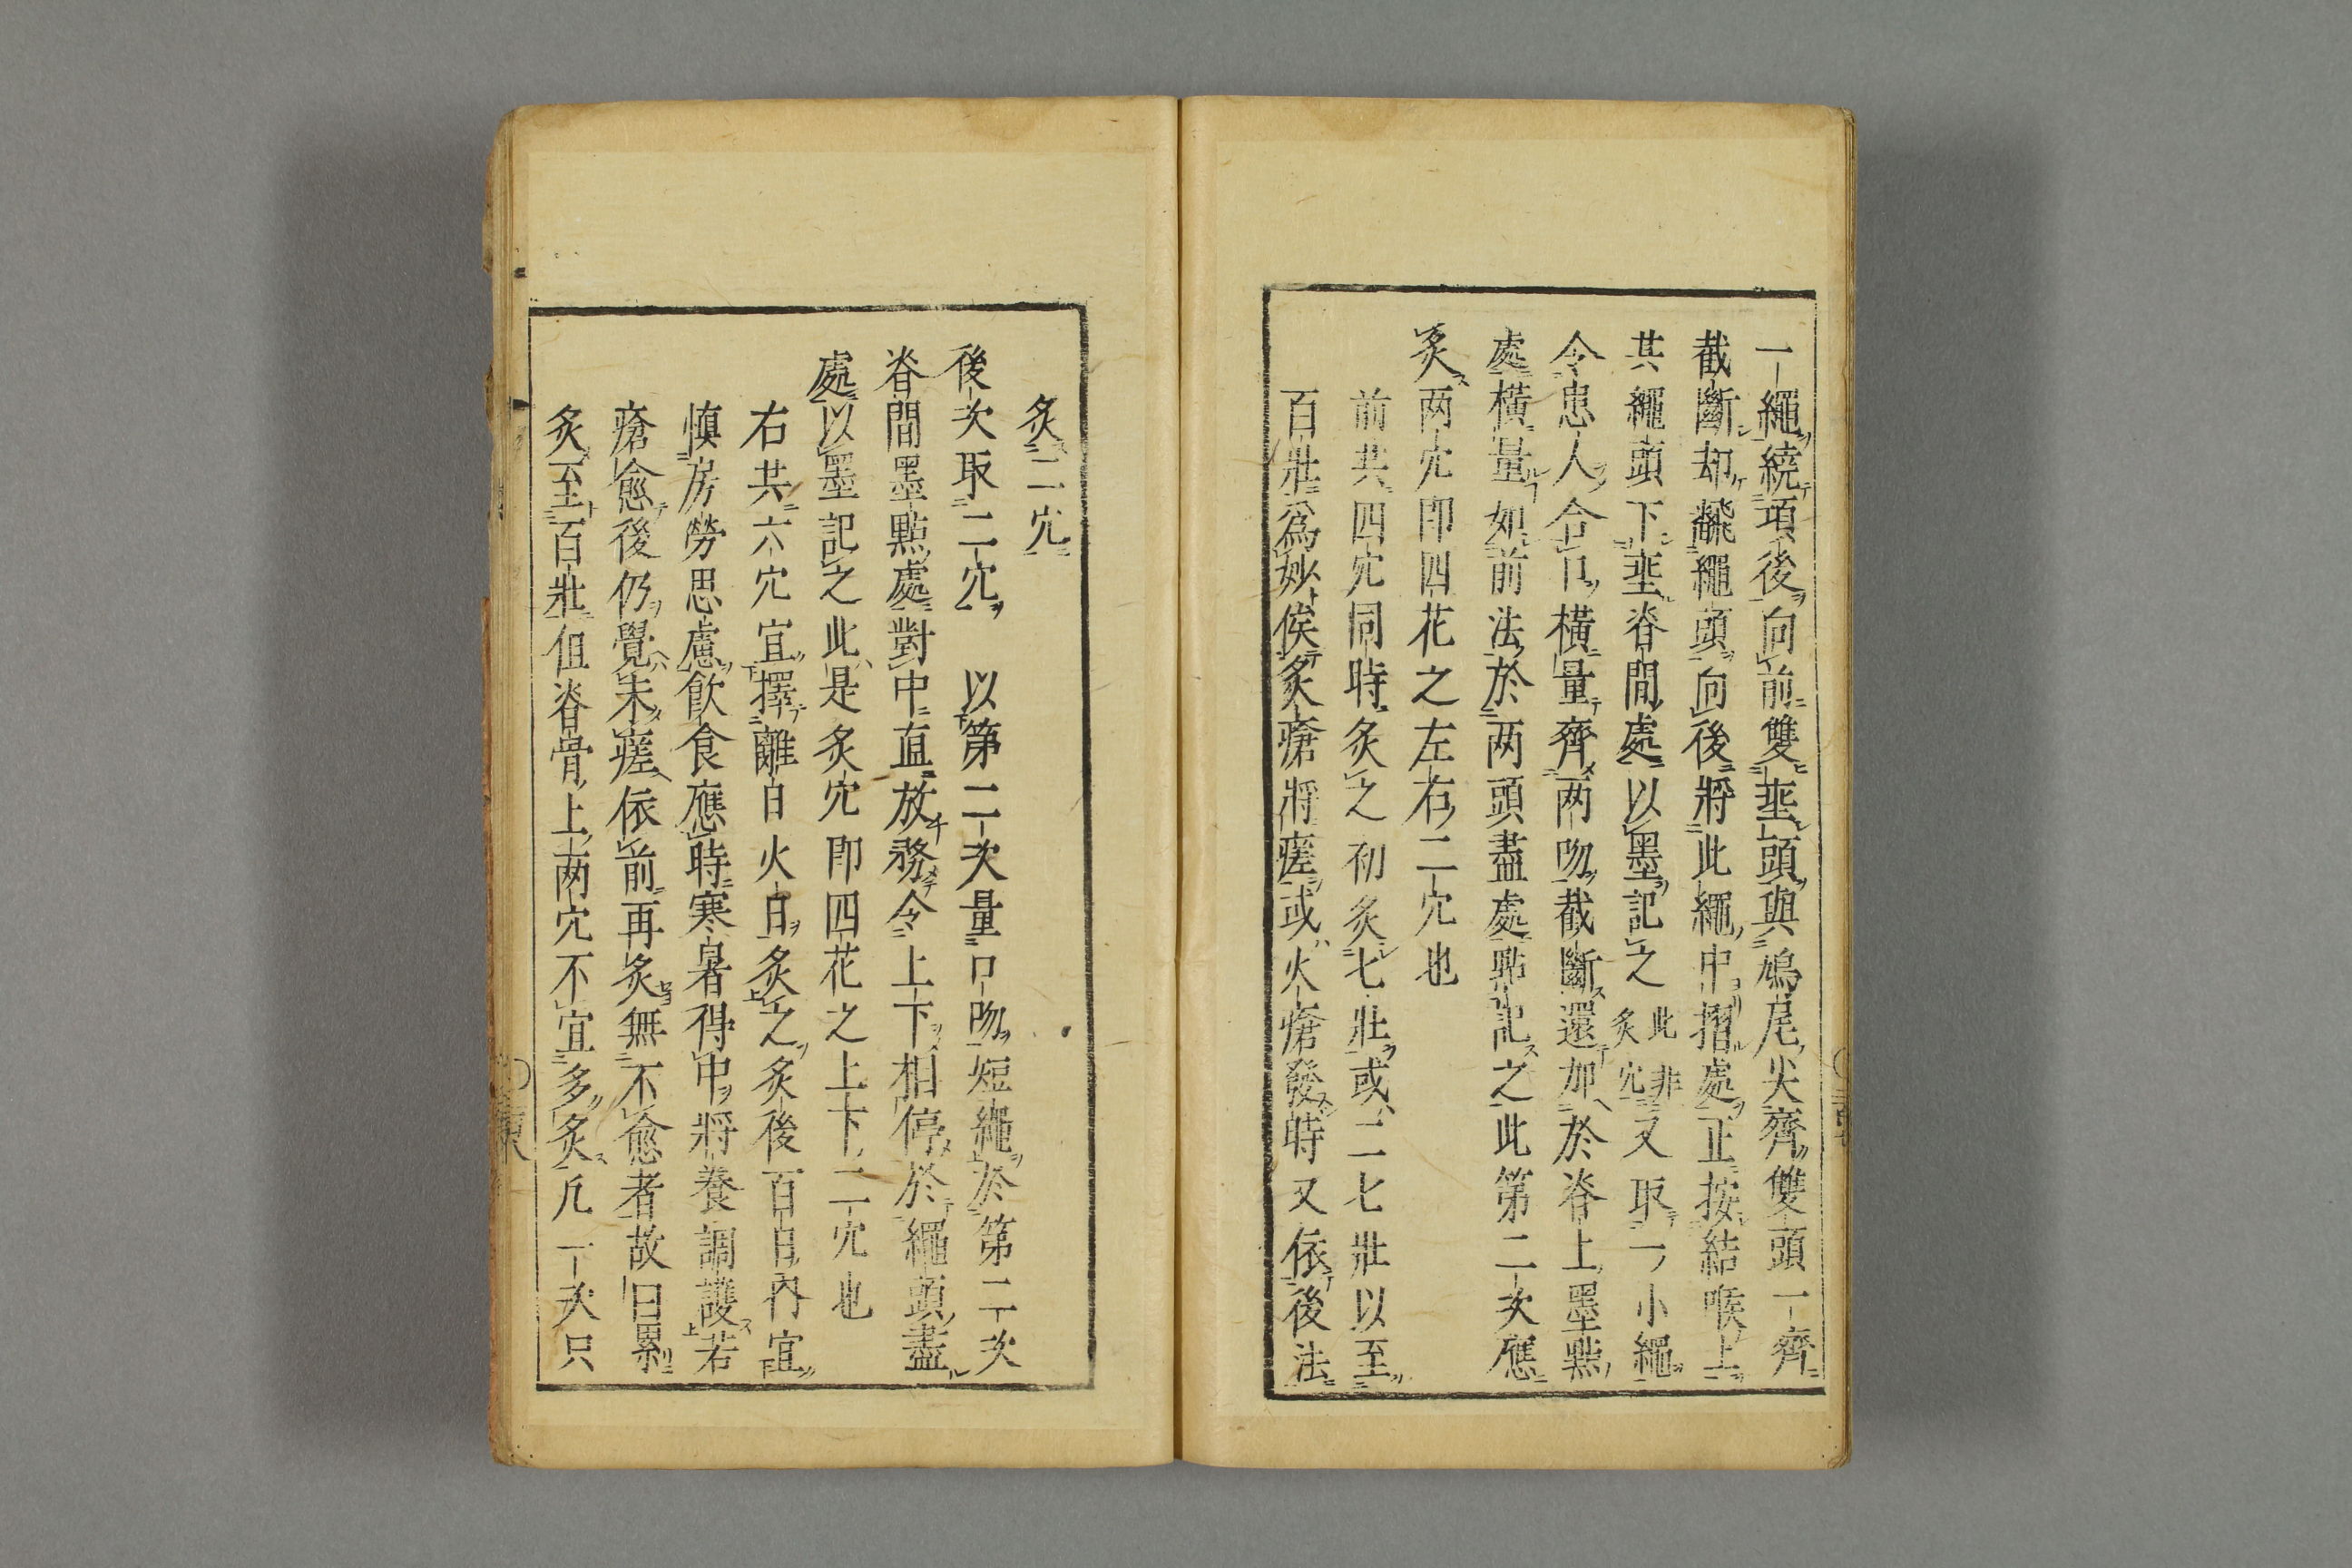 一繩繞項後向前雙垂頭與鳩尾尖齊雙頭一齊
截斷却飜繩頭向後將此繩中摺處正按結喉上
其繩頭下垂脊間處以墨記之此非灸穴又取一小繩
令患人合口橫量齊兩吻截斷還加於脊上墨點
處橫量如前法於两頭盡處點記之此第二次應
灸两穴即四花之左右二穴也
前共四穴同時灸之初灸七壯或二七壯以至
百壯爲妙俟灸瘡將瘥或火瘡發時又依後法
灸二穴
後次取二穴 以第二次量口吻短繩於第二次
脊間墨點處對中直放務令上下相停於繩頭盡
處以墨記之此是灸穴即四花之上下二穴也
右共六穴宜擇離日火日灸之灸後百日內宜
慎房勞思慮飲食應時寒暑得中將養調護若
瘡愈後仍覺未瘥依前再灸無不愈者故曰累
灸至百壯但脊骨上两穴不宜多灸凡一次只